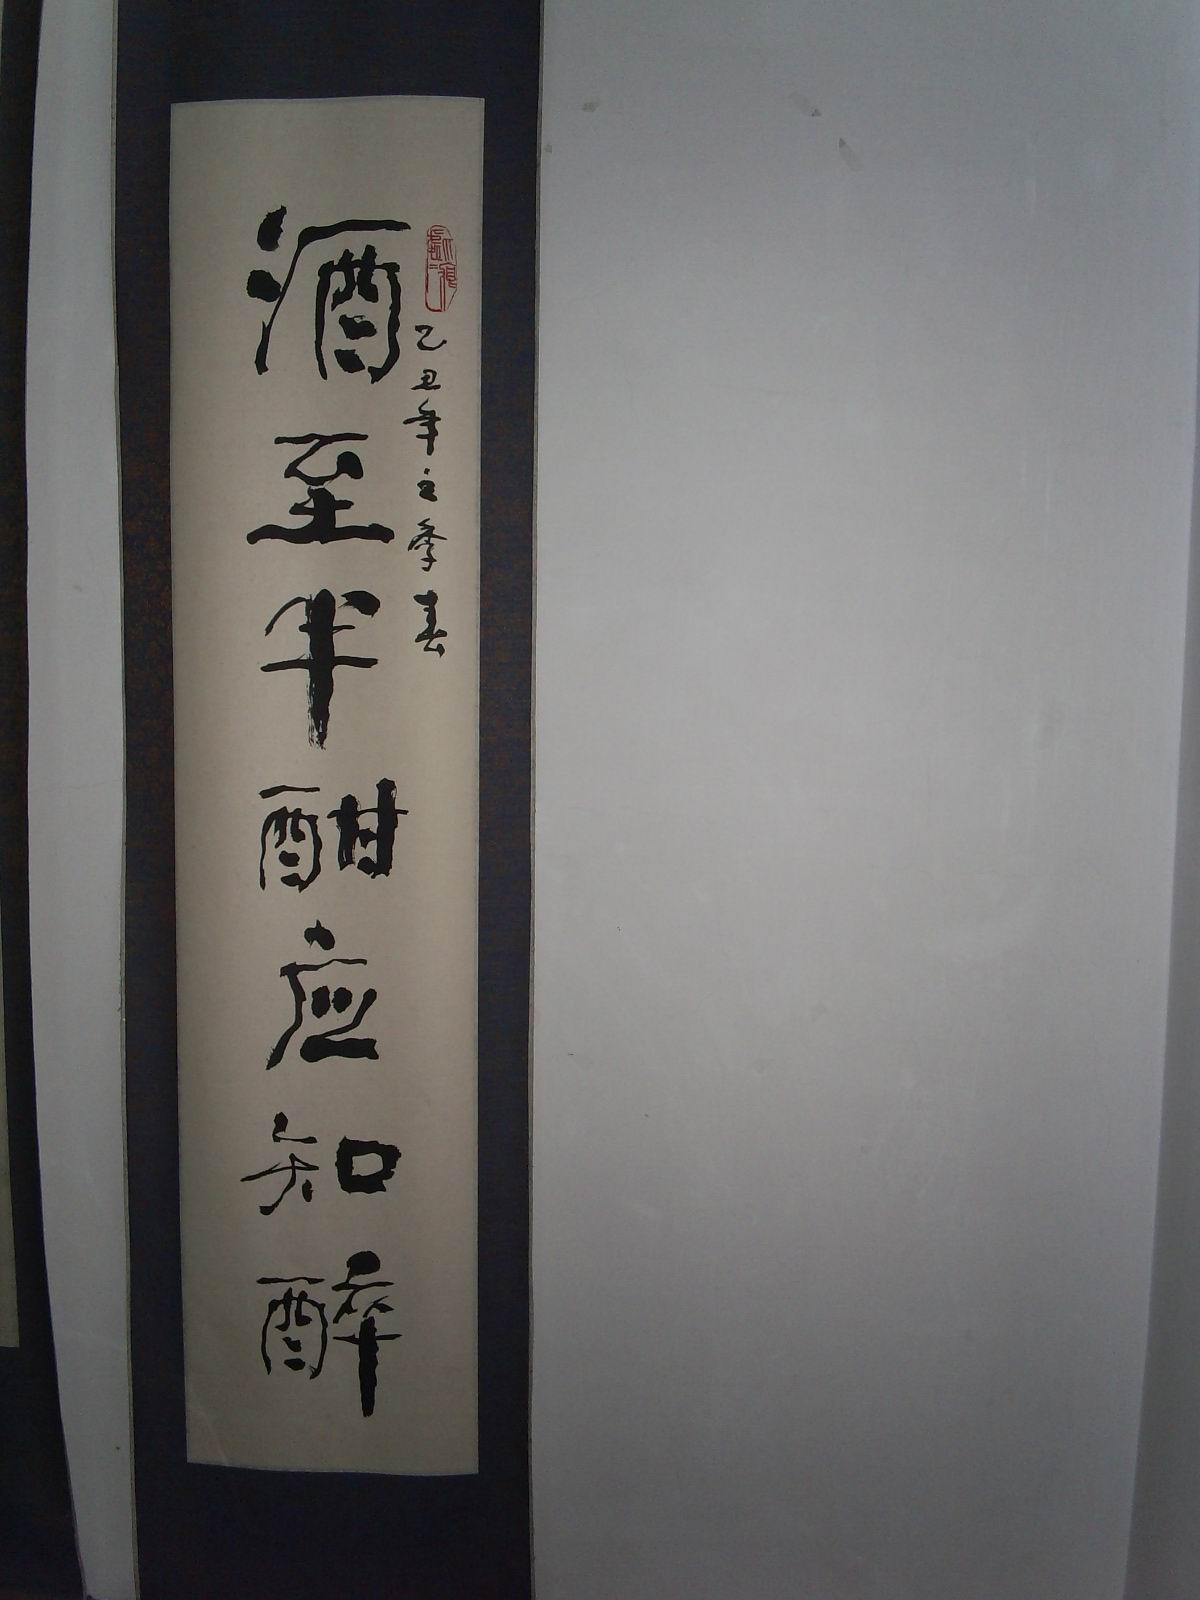 乙丑年之季春
酒至半酣应知醉